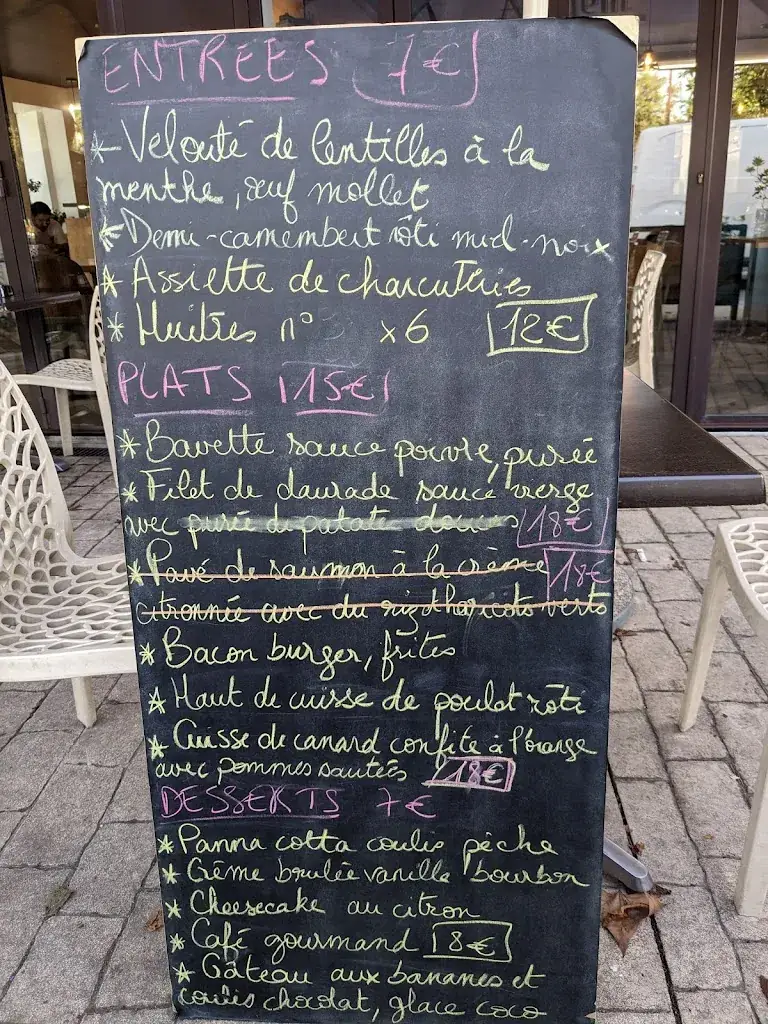 ENTRÉES 7€
* Velouté de lentilles à la
menthe, œuf mollet
* Demi-camembert rôti miel-noix
* Assiette de charcuteries
* Huîtres n° x6 12€
PLATS 15€
* Bavette sauce poivre, purée
* Filet de daurade sauce vierge
avec purée de patate douces 18€
* Pavé de saumon à la crème 18€
citronnée avec du riz & haricots verts
* Bacon burger, frites
* Haut de cuisse de poulet rôti
* Cuisse de canard confite à l'orange
avec pommes sautées 18€
DESSERTS 7€
* Panna cotta coulis pêche
* Crème brulée vanille bourbon
* Cheesecake au citron
* Café gourmand 8€
* Gâteau aux bananes et
coulis chocolat, glace coco